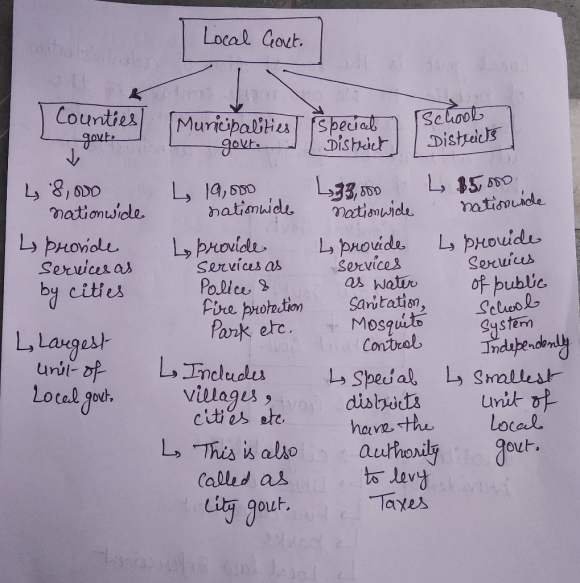 Local Govt.
Counties
govt.
8,000
nationwide
provide
Services as
by cities
Largest
unit of
Local govt.
Municipalities
govt.
19,000
nationwide
provide
Services as
Police &
Fire protection
Park etc.
Includes
villages,
cities etc.
This is also
called as
city govt.
Special
District
33,000
nationwide
provide
services
as water
Sanitation,
Mosquito
Control
Special
districts
have the
authority
to levy
Taxes
School
Districts
15,000
nationwide
provide
Services
of public
School
System
Independently
Smallest
unit of
Local
govt.